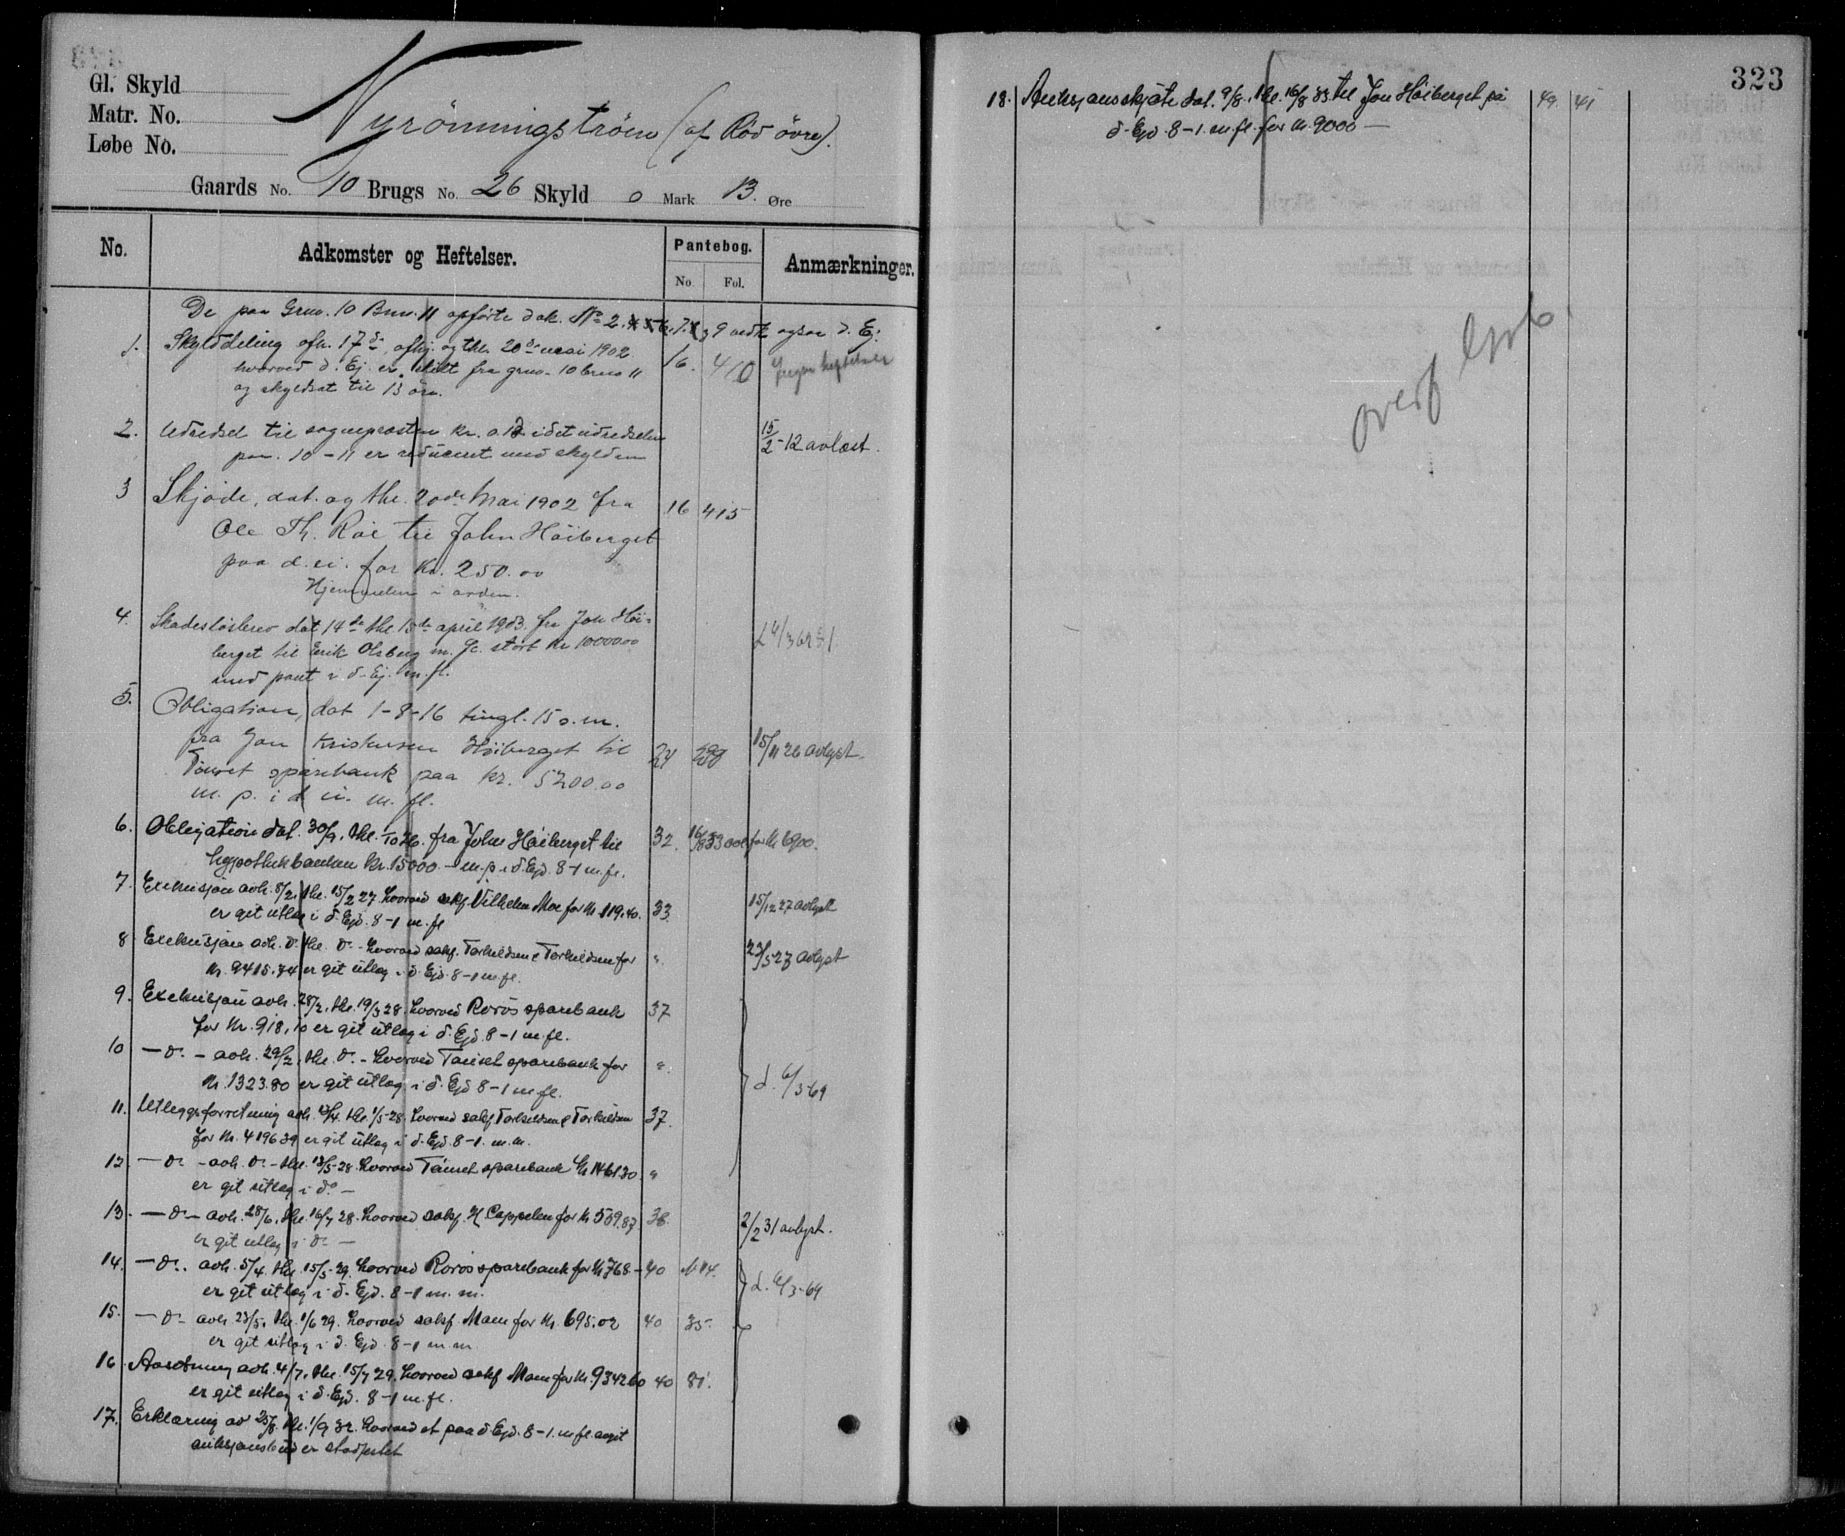 323
Gl. Skyld
Matr. No.
Løbe No.
Nyrönningströen (af Röd övre).
Gaards No. 10 Brugs No. 26 Skyld 0 Mark 13 Øre
No. Adkomster og Heftelser. Pantebog. Anmærkninger.
No. Fol.
De paa Grno. 10 Brno. 11 opförte dok. No 2. 9 vedk. ogsaa d. Ej.
1. Skylddeling afh. 17de, afhj. og thl. 20de mai 1902 16. 410 Ingen heftelser
hvorved d. Ej. er skilt fra grno. 10 brno 11
og skyldsat til 13 öre.
2. Udredsel til sognepresten kr. 0.12 idet udredselen 15/2-12 avlæst.
paa 10-11 er reduceret med skylden
3 Skjöde, dat. og thl. 20de Mai 1902 fra 16 415
Ole Th. Röe til John Höiberget
paa d. ei. for Kr. 250.00
Hjemmelen i orden.
4. Skadeslösbrev dat 14de thl. 15de april 1903. fra Jon Höi-
berget til Erik Olsberg m. fl. stort kr 10000.00
med pant i d. Ej. m. fl.
5. Obligation, dat 1-8-16 tingl. 15 s.m.
fra Jon Kristensen Höiberget til 24 15/11 26 avlyst.
Tönset sparebank paa kr. 5200.00
m. p. i d. ei. m. fl.
6. Obligation dat. 30/9, thl. 1/10 26. fra John Höiberget til 32. 16/8 33 for kr 6900.
hypothekbanken kr. 15000.- m.p. i d. Ejd. 8-1 m.fl.
7. Exekusjon avh. 8/2, thl. 15/2 27. hvorved sakf. Vilhelm Moe for kr. 119.40. 33. 15/12 27 avlyst
er git utlæg i d. Ejd. 8-1 m. fl
8 Exekusjon avh. do. thl. do. - hvorved sakf. Torkildsen & Torkildsen for " 23/5 27 avlyst
kr. 9415.74 er git utlæg i d. Ejd. 8-1 m.fl.
9. Exekusjon avh. 28/2, thl. 19/3 28. hvorved Röros sparebank 37
for kr. 918,10 er git utlæg i d. Ejd. 8-1 m.fl.
10 - do. - avh. 29/2, thl. do. - hvorved Tönset sparebank for " d. 6/3-69
kr. 1323.80 er git utlæg i d. Ejd 8-1 m.fl.
11. Utlægsforretning avh. thl. 1/5-28. hvorved sakf. Torkildsen & Torkildsen 37.
for kr. 4196.39 er git utlæg i d. Ejd. 8-1. m.m.
12. - do - avh. do. - thl. 12/5-28. hvorved Tönset sparebank kr 1461.30. "
er git utlæg i do. -
13. - do - avh. 28/6, thl. 16/7 28. hvorved sakf. H. Cappelen for kr 539.87 38. 2/2 31 avlyst.
er git utlæg i do -
14. - do. avh. 5/4. thl. 15/5-29. hvorved Röros sparebank for kr 768.- 40 d. 6/3-69
er git utlæg i d. Ejd. 8-1 m. m.
15. - do - avh 23/5, thl. 1/6 29. hvorved sakf. Mam for kr. 695.02 40 35.
er git utlæg i d. Ejd. 8-1 m.m.
16. Avsetning avh. 4/7, thl. 15/7 29. hvorved sakf Mam for kr. 934260 40 81.
er git utlæg i d. Ejd. 8-1 m. fl.
17. Erklæring av 25/8, thl. 1/9 32. hvorved et paa d. Ejd. 8-1. m fl. avgit
auksjonsbud er stadfestet
18. Auksjonsskjöte dat. 9/8, thl. 16/8 33 til Jon Höiberget på 49. 41
d. Ejd. 8-1. m. fl. for kr. 9000 -
overf